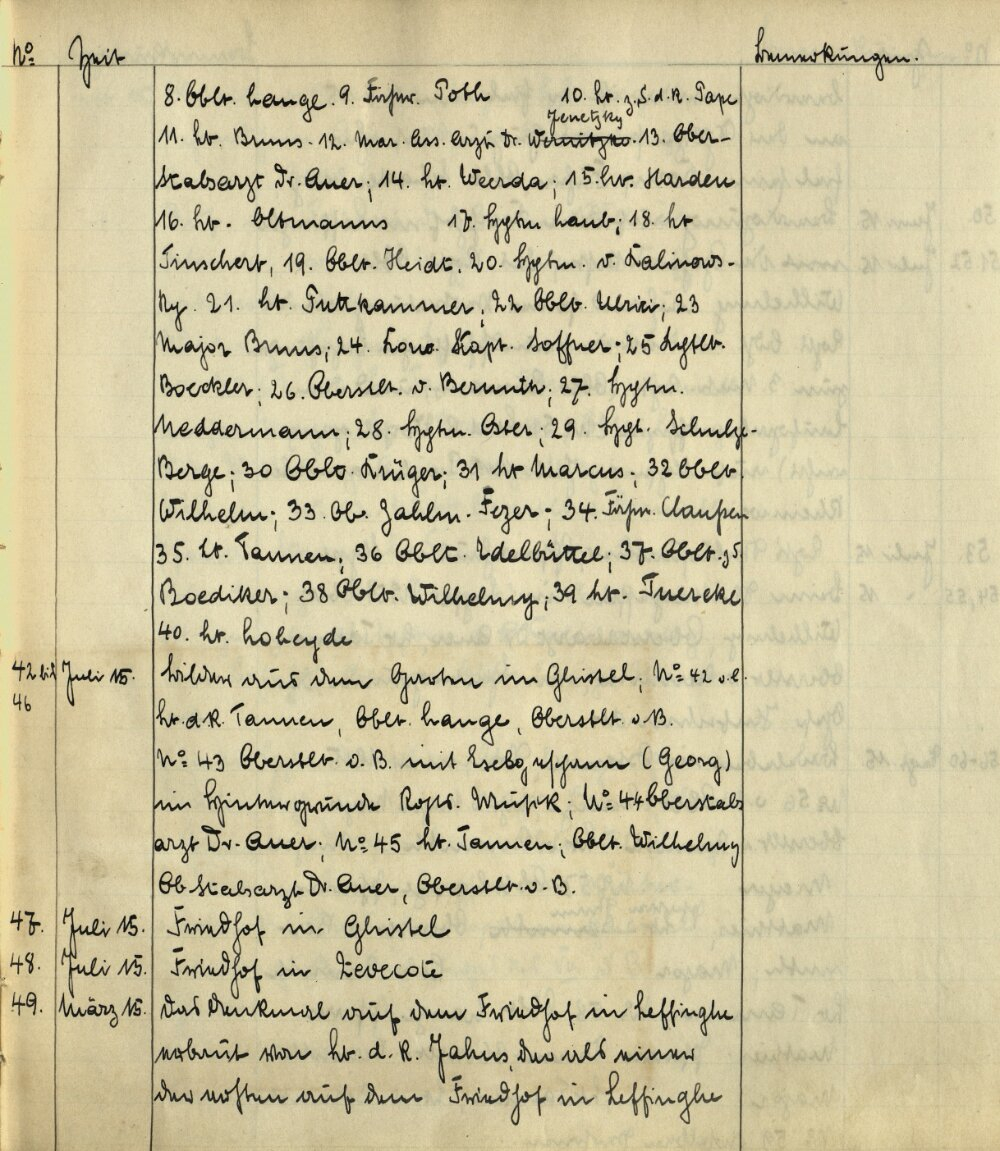 No Zeit Bemerkungen.
8. Oblt. Lange. 9. Fähnr. Poth 10. Lt. z. S. d. R. Pape
Jenetzky
11. Lt. Bruns. 12. Mar. Ass. Arzt Dr. Wernitzko. 13. Ober-
Stabsarzt Dr. Auer; 14. Lt. Weerda; 15. Lt. Harden
16. Lt. Oltmanns 17. Hptm Laub; 18. Lt
Tinschert, 19. Oblt. Heidt, 20. Hptm. v. Kalinows-
ky. 21. Lt. Puttkammer, 22 Oblt. Ulrici; 23
Major Bruns; 24. Korv. Kapt. Soffner; 25 Kptlt.
Boeckler; 26. Oberstlt. v. Bernuth; 27. Hptm.
Neddermann; 28. Hptm. Oster; 29. Hpt. Schulze-
Berge; 30 Oblt. Krüger; 31 Lt Marcus; 32 Oblt.
Wilhelm; 33. Ob. Zahlm. Fezer; 34. Fähnr. Claussen
35. Lt. Tannen; 36 Oblt. Edelbüttel; 37. Oblt. z S.
Boediker; 38 Oblt. Wilhelmy; 39 Lt. Tuercke
40. Lt. Loheyde
42 bis Juli 15. Bilder aus dem Garten in Ghistel; No 42 v. l.
46 Lt. d R. Tannen, Oblt. Lange, Oberstlt v B.
No 43 Oberstlt. v. B. mit (Georg)
im Hintergrunde Regts. Musik; No 44 Oberstabs
arzt Dr. Auer; No 45 Lt. Tannen; Oblt. Wilhelmy
Ob Stabsarzt Dr. Auer, Oberstlt. v. B.
47. Juli 15. Friedhof in Ghistel
48. Juli 15. Friedhof in Zevecote
49. März 15. Das Denkmal auf dem Friedhof in Leffinghe
erbaut von Lt. d. R. Jahns, der als einer
der ersten auf dem Friedhof in Leffinghe